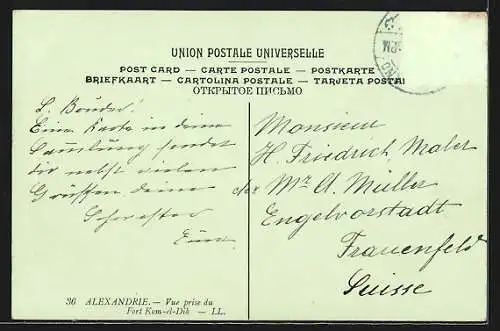 UNION POSTALE UNIVERSELLE
POST CARD — CARTE POSTALE — POSTKARTE
BRIEFKAART — CARTOLINA POSTALE — TARJETA POSTAL
ОТКРЫТОЕ ПИСЬМО
L. Bruder!
Eine Karte in deine
Sammlung sendet
dir nebst vielen
Grüssen deine
Schwester
Monsieur
H. Friedrich Maler
Mr A. Müller
Engelvorstadt
Frauenfeld
Suisse
36 ALEXANDRIE. — Vue prise du
Fort Kom-el-Dik — LL.